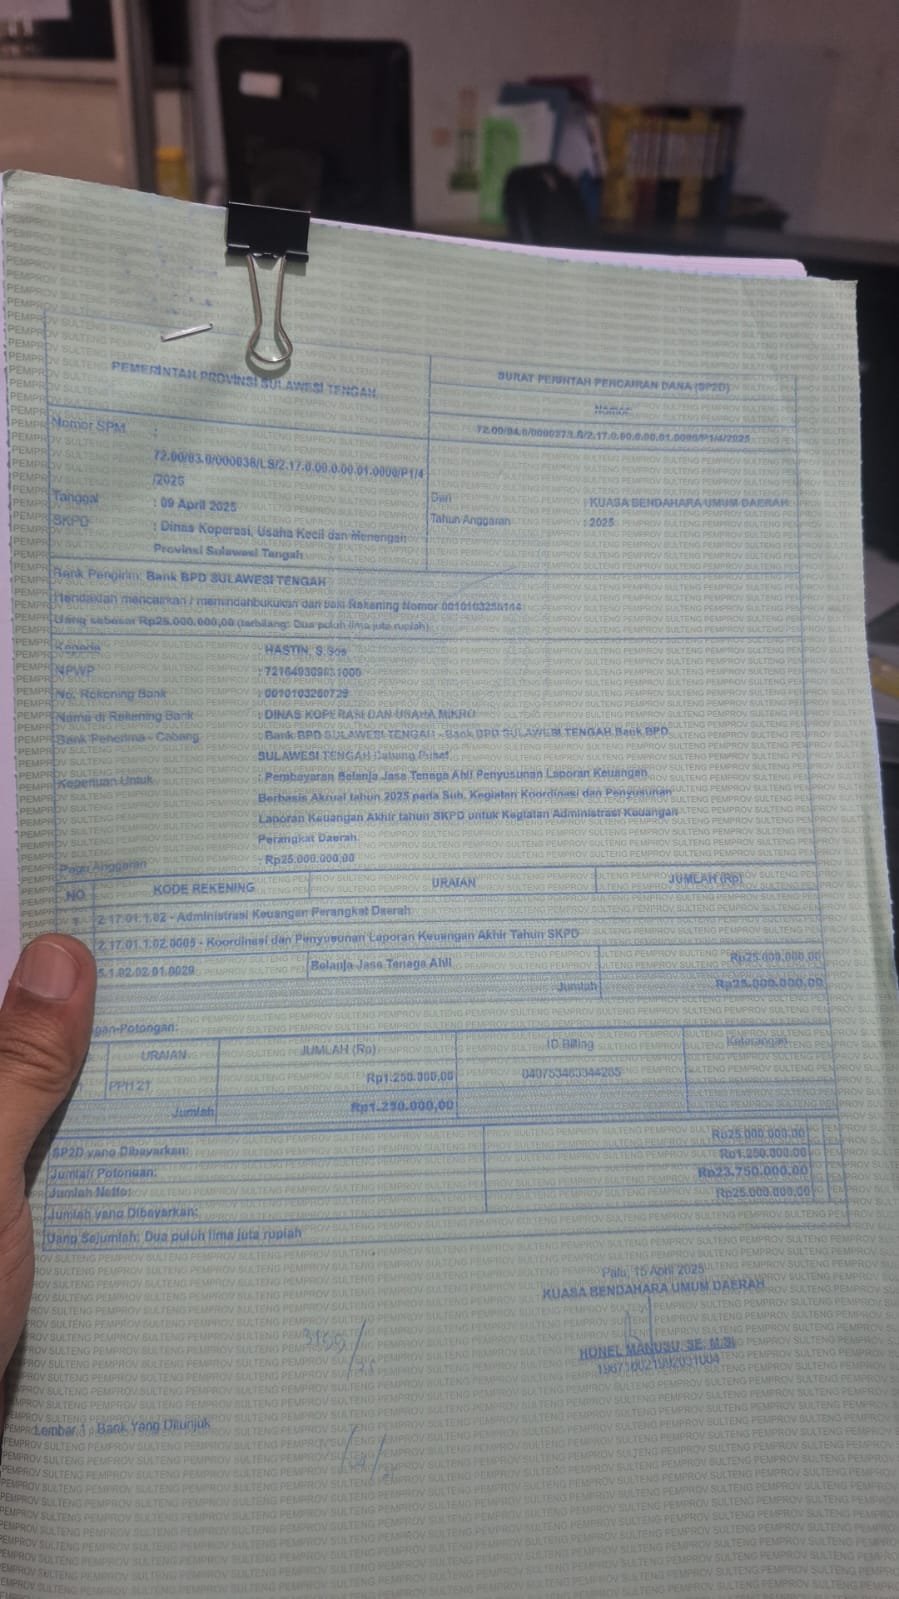 PEMERINTAH PROVINSI SULAWESI TENGAH
SURAT PERINTAH PENCAIRAN DANA (SP2D)
Nomor:
Nomor SPM :
72.00/03.0/000038/LS/2.17.0.00.0.00.01.0000/P1/4
/2025
Tanggal : 09 April 2025
SKPD : Dinas Koperasi, Usaha Kecil dan Menengah
Provinsi Sulawesi Tengah
Dari : KUASA BENDAHARA UMUM DAERAH
Tahun Anggaran : 2025
Bank Pengirim: Bank BPD SULAWESI TENGAH
Hendaklah mencairkan / memindahbukukan dari baki Rekening Nomor
Uang sebesar Rp25.000.000,00 (terbilang: Dua puluh lima juta rupiah)
Kepada : HASTIN, S.Sos
NPWP :
No. Rekening Bank : 0010103260729
Nama di Rekening Bank : DINAS KOPERASI DAN USAHA MIKRO
Bank Penerima - Cabang : Bank BPD SULAWESI TENGAH - Bank BPD SULAWESI TENGAH Bank BPD
SULAWESI TENGAH Cabang Pusat
Keperluan Untuk : Pembayaran Belanja Jasa Tenaga Ahli Penyusunan Laporan Keuangan
Berbasis Akrual tahun 2025 pada Sub. Kegiatan Koordinasi dan Penyusunan
Laporan Keuangan Akhir tahun SKPD untuk Kegiatan Administrasi Keuangan
Perangkat Daerah.
Pagu Anggaran : Rp25.000.000,00
NO KODE REKENING URAIAN JUMLAH (Rp)
2.17.01.1.02 - Administrasi Keuangan Perangkat Daerah
2.17.01.1.02.0005 - Koordinasi dan Penyusunan Laporan Keuangan Akhir Tahun SKPD
5.1.02.02.01.0029 Belanja Jasa Tenaga Ahli Rp25.000.000,00
Jumlah Rp25.000.000,00
gan-Potongan:
URAIAN JUMLAH (Rp) ID Billing Keterangan
PPH 21 Rp1.250.000,00
Jumlah Rp1.250.000,00
SP2D yang Dibayarkan: Rp25.000.000,00
Jumlah Potongan: Rp1.250.000,00
Jumlah Netto: Rp23.750.000,00
Jumlah yang Dibayarkan: Rp25.000.000,00
Uang Sejumlah: Dua puluh lima juta rupiah
Palu, 15 April 2025
KUASA BENDAHARA UMUM DAERAH
MANUSU, SE, M.Si
Lembar 1 : Bank Yang Ditunjuk
PEMPROV SULTENG